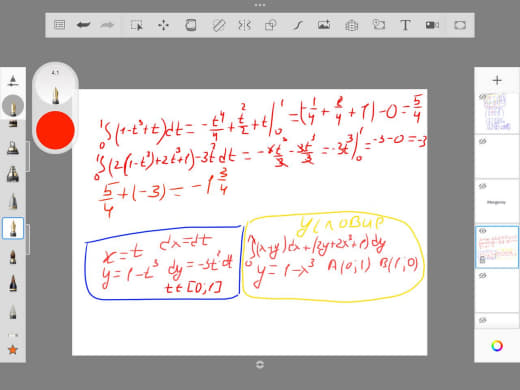 4.1
∫₀¹(1-t³+t)dt = -t⁴/4 + t²/2 + t|₀¹ = (1/4 + /4 + 1) - 0 = 5/4
∫₀¹(2(1-t³)+2t³+1)-3t²dt = = -3t³|₀¹ = -3-0 = -3
5/4 + (-3) = -1 3/4
x = t dx = dt
y = 1-t³ dy = -3t²dt
t ∈ [0;1]
Условие
∫(x-y)dx + (2y+2x³+1)dy
y = 1-x³ A(0;1) B(1;0)